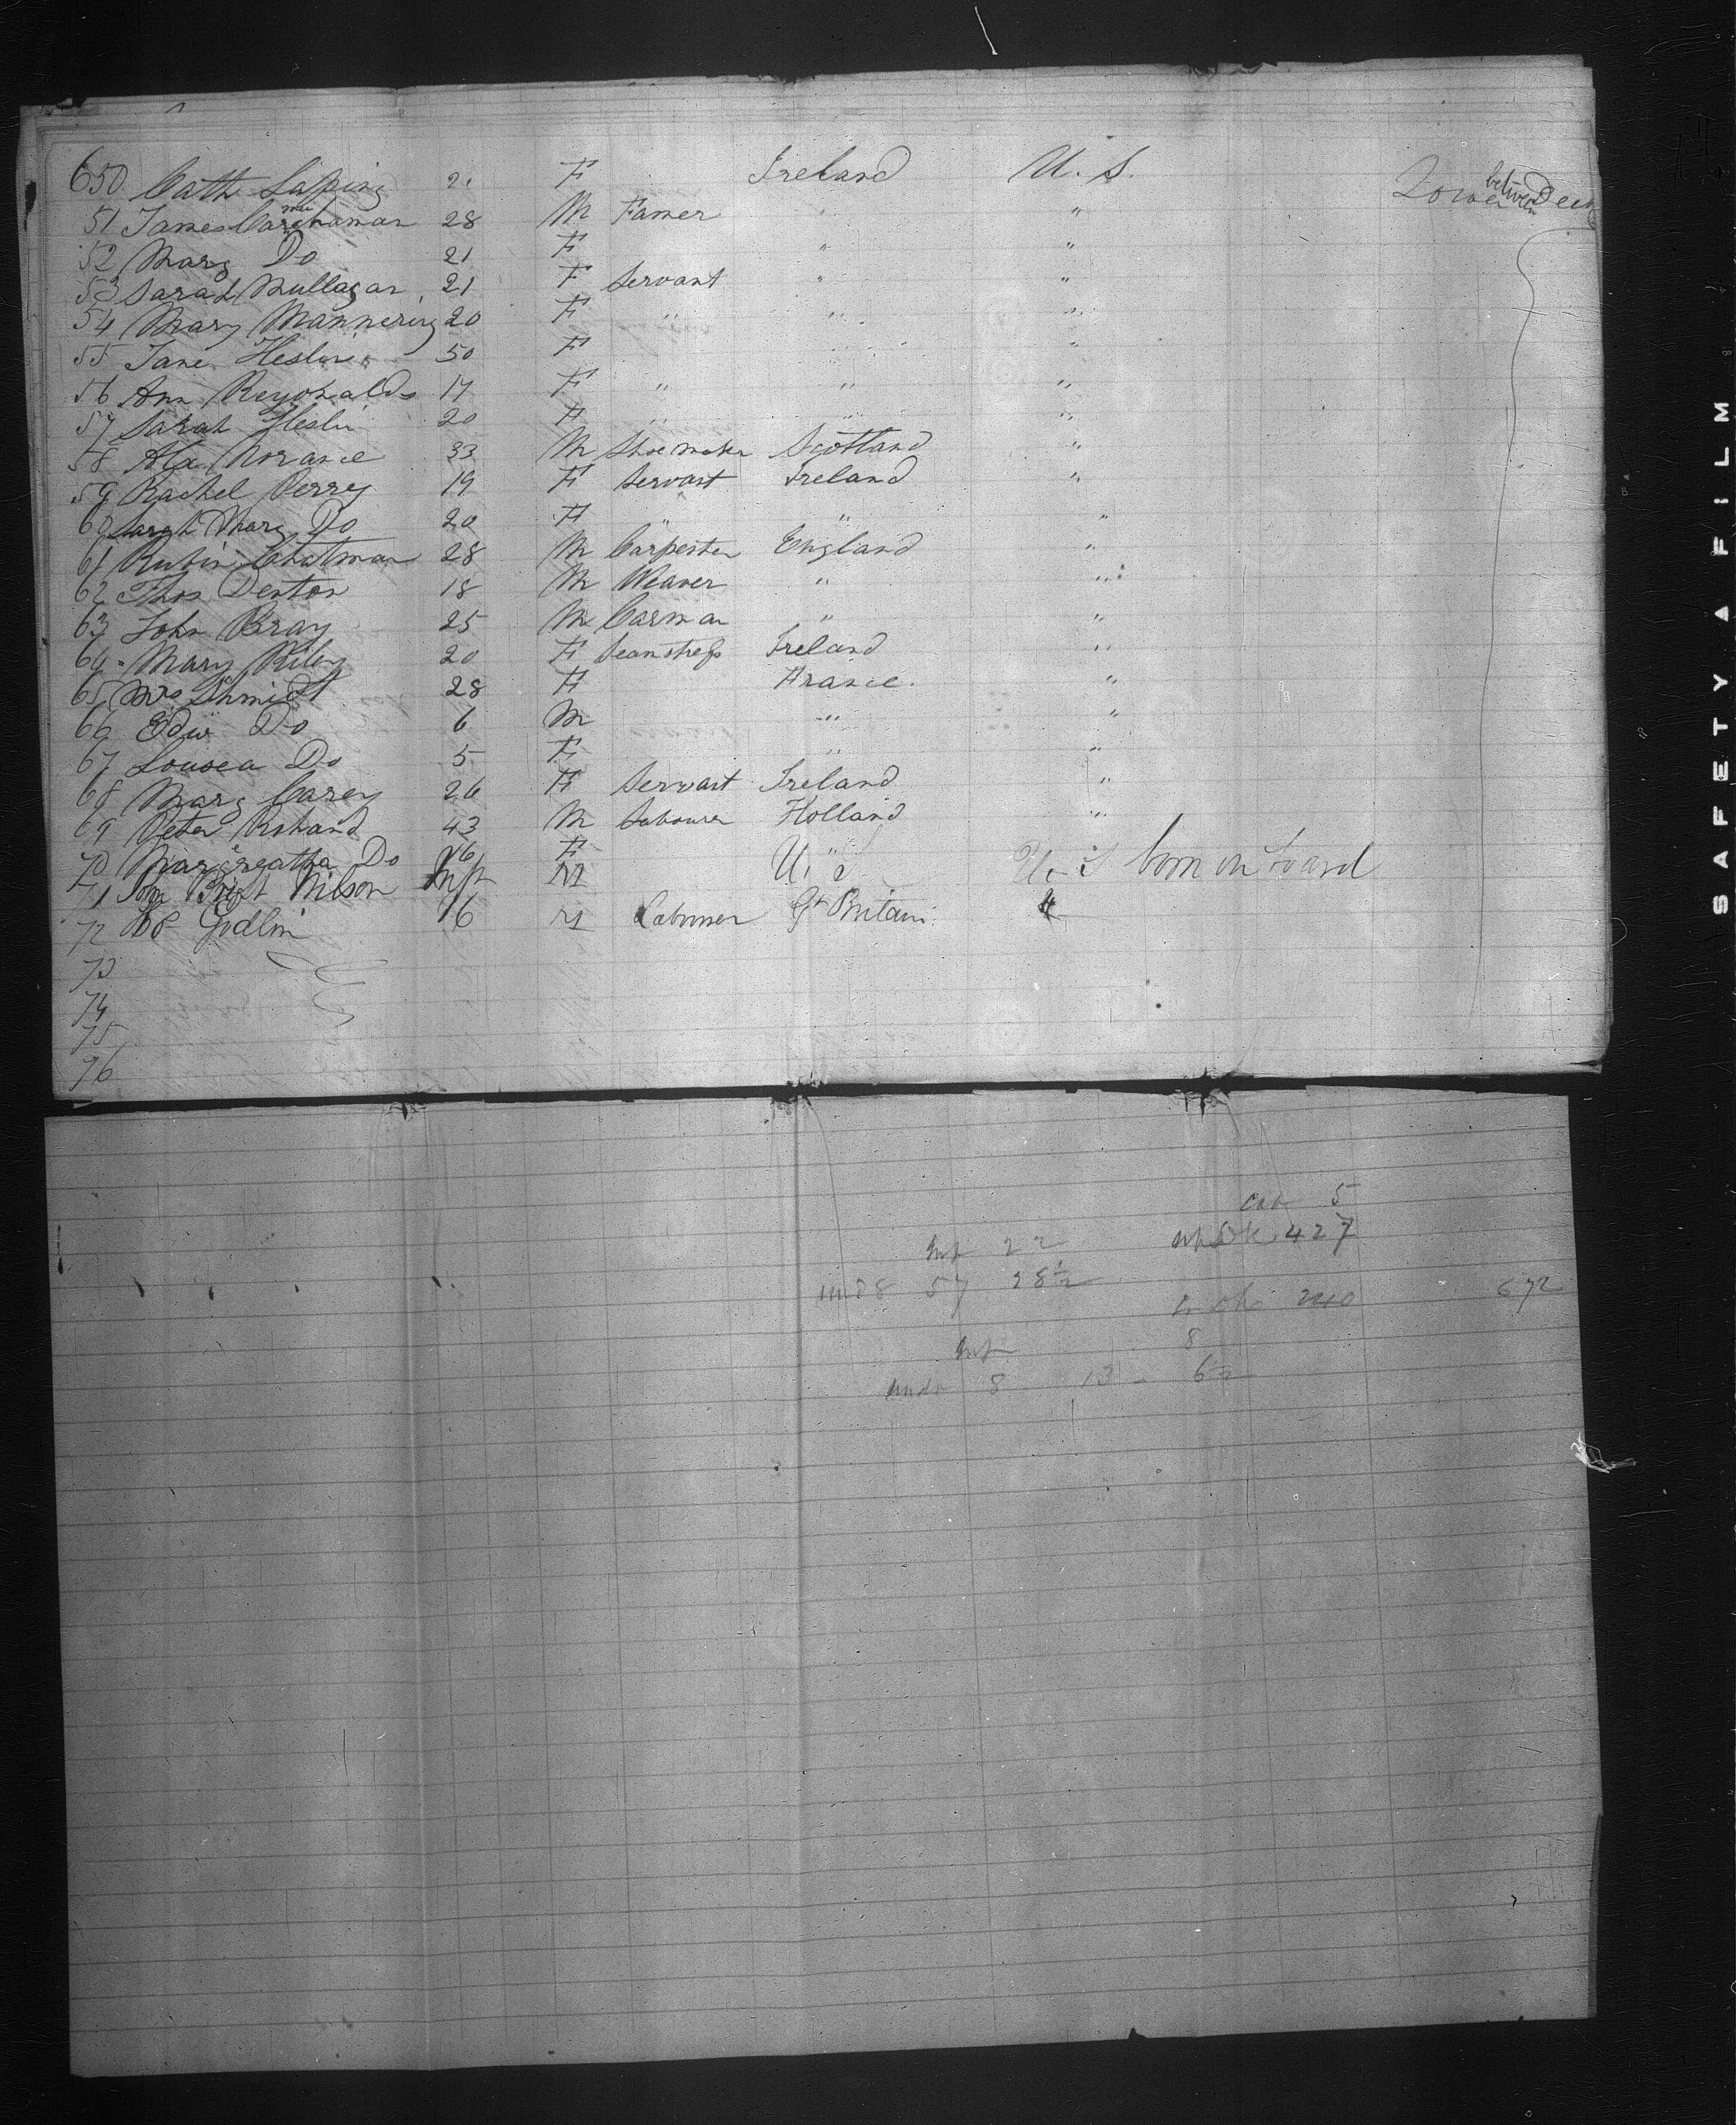 650 Cath Laping 21 F Ireland U. S. Lower between Deck
51 James 28 M Famer " "
52 Mary Do 21 F " "
53 Sarah Mullagan 21 F Servant " "
54 Mary Mannering 20 F " " "
55 Jane Heslin 50 F " "
56 Ann Reynolds 17 F " " "
57 Sarah Heslin 20 F " " "
58 Alex Norance 33 M Shoe maker Scotland "
59 Rachel Perry 19 F Servant Ireland "
60 Sarah Mary Do 20 F " " "
61 Rubin Chatman 28 M Carpenter England "
62 Thos Denton 18 M Weaver " "
63 John Bray 25 M Carman " "
64 Mary Riley 20 F Seamstress Ireland "
65 Mrs Schmidt 28 F France "
66 Edw Do 6 M " "
67 Lousea Do 5 F " "
68 Mary Carey 26 F Servant Ireland "
69 Peter 43 M Labourer Holland "
70 Do 16 F "
71 Nilson Inft M U. S U. S born on board
72 Godlin 16 M Labourer Gt Britain
73
74
75
76
cab 5
Inf 22 up Dk 427
57 28½ 240 672
Inf 8
undr 8 13 - 6½
SAFETY A FILM